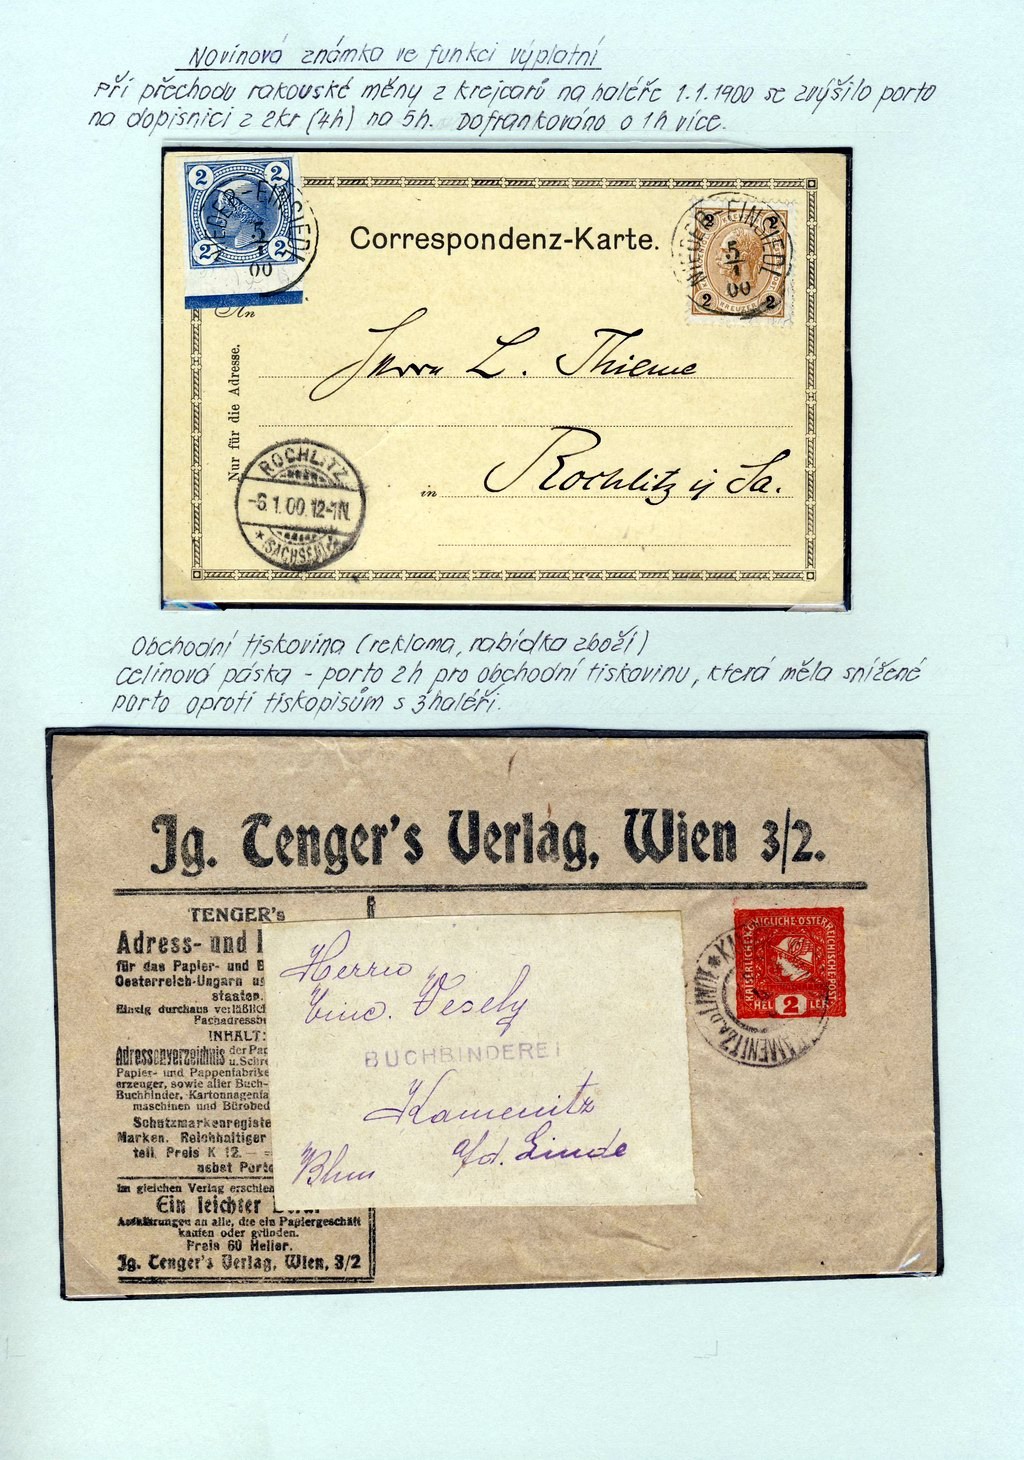 Novinová známka ve funkci výplatní
Při přechodu rakouské měny z krejcarů na haléře 1.1.1900 se zvýšilo porto
na dopisnici z 2kr (4h) na 5h. Dofrankováno o 1h více.
2 2
2 2
NIEDER-EINSIEDL
5
1
00
Correspondenz-Karte.
2 2
2 2
KREUZER
NIEDER-EINSIEDL
5
1
00
An
Nur für die Adresse.
Herrn L. Thieme
in Rochlitz i/ Sa.
ROCHLITZ
-6.1.00.12-1N.
* (SACHSEN)
Obchodní tiskovina (reklama, nabídka zboží)
Celinová páska - porto 2h pro obchodní tiskovinu, která měla snížené
porto oproti tiskopisům s 3 haléři.
Jg. Tenger's Verlag, Wien 3/2.
TENGER's
Adress- und
für das Papier- und B
Oesterreich-Ungarn
staaten.
Einzig durchaus verläßlic
Pachadressb
INHALT:
Adressenverzeichnis der Pap
u. Schre
Papier- und Pappenfabrike
erzeuger, sowie aller Buch-
Buchbinder, Kartonnagenfa
maschinen und Bürobed
Schutzmarkenregiste
Marken. Reichhaltiger
teil. Preis K 12.—
nebst Porto
Im gleichen Verlag erschien
Ein leichter
Aufklärungen an alle, die ein Papiergeschäft
kaufen oder gründen.
Preis 60 Heller.
Jg. Tenger's Verlag, Wien, 3/2
Herrn
Vinc. Vesely
BUCHBINDEREI
Kamenitz
a/d. Linde
Bhm
KAISERLICHE KÖNIGLICHE ÖSTERREICHISCHE POST
HEL 2 LER
KAMENITZ A.D. LINDE